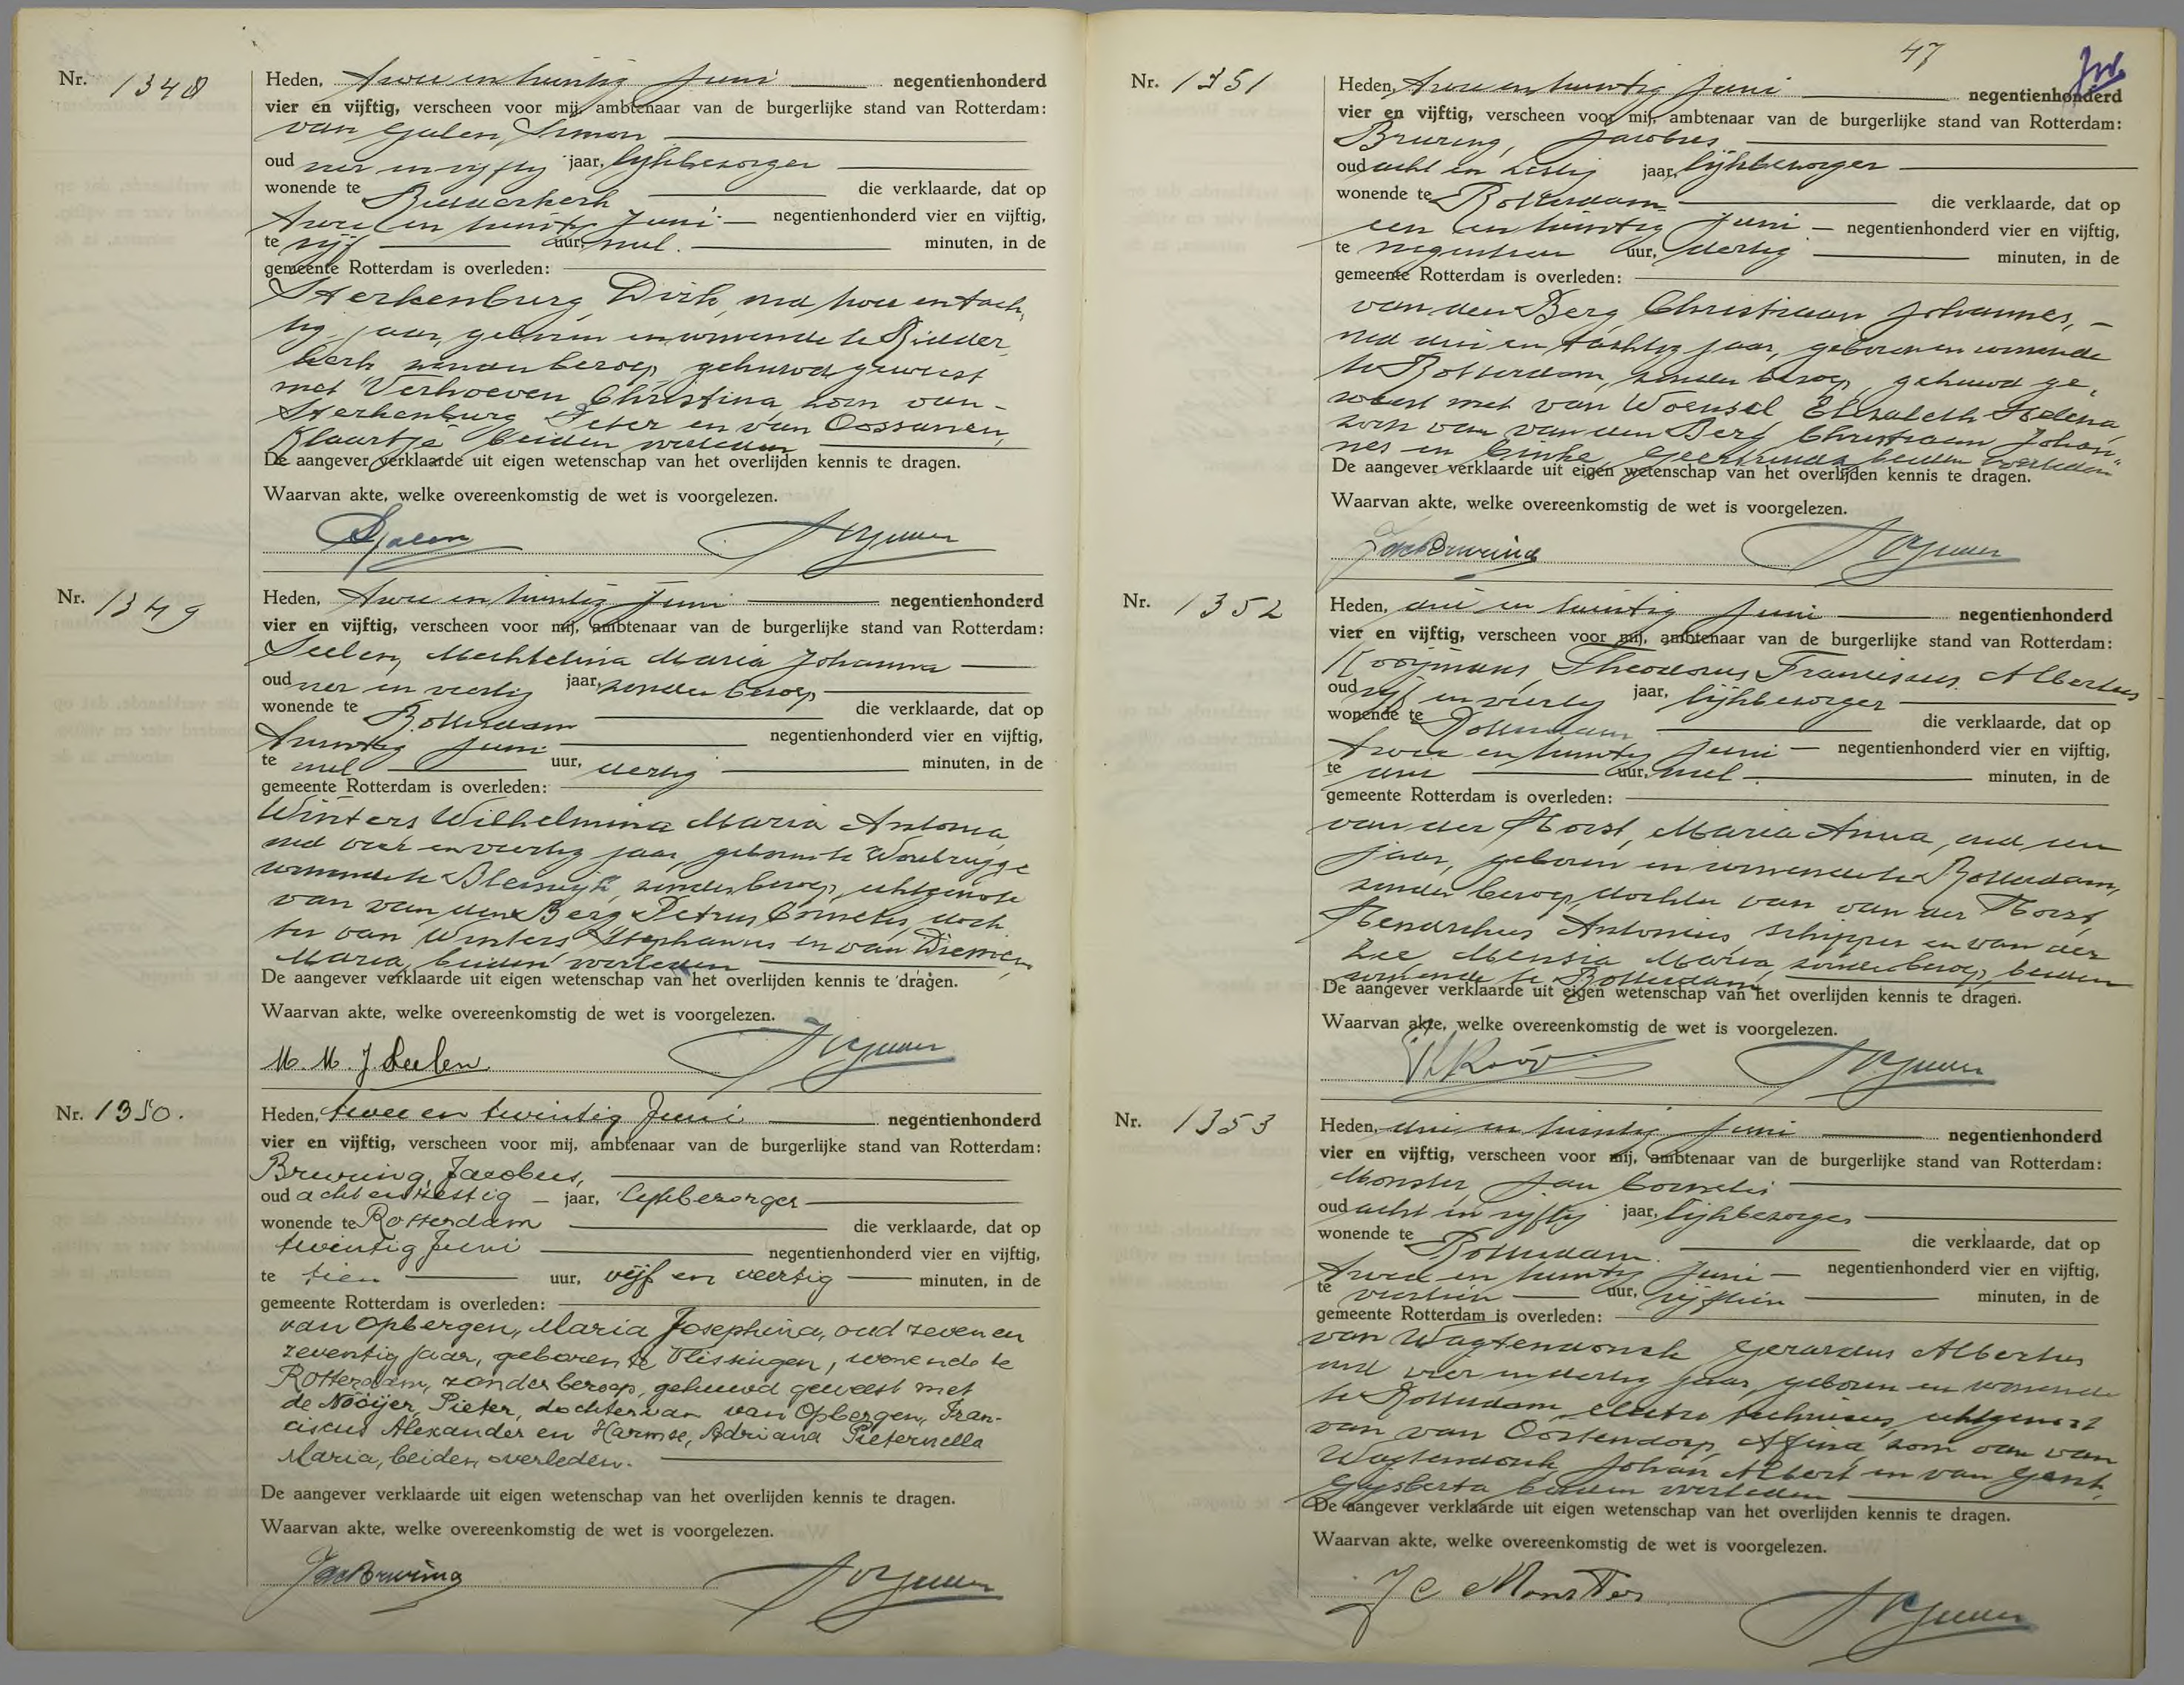 Nr. 1348
Heden, twee en twintig Juni negentienhonderd
vier en vijftig, verscheen voor mij, ambtenaar van de burgerlijke stand van Rotterdam:
van Galen, Simon
oud vier en vijftig jaar, lijkbezorger
wonende te Ridderkerk die verklaarde, dat op
twee en twintig Juni negentienhonderd vier en vijftig,
te vijf uur, nul minuten, in de
gemeente Rotterdam is overleden:
Sterkenburg, Dirk, oud twee en tach-
tig jaar, geboren en wonende te Ridder-
kerk, zonder beroep, gehuwd geweest
met Verhoeven, Christina, zoon van
Sterkenburg, Peter en van Oossanen,
Klaartje, beiden overleden
De aangever verklaarde uit eigen wetenschap van het overlijden kennis te dragen.
Waarvan akte, welke overeenkomstig de wet is voorgelezen.
SGalen
Nr. 1349
Heden, twee en twintig Juni negentienhonderd
vier en vijftig, verscheen voor mij, ambtenaar van de burgerlijke stand van Rotterdam:
Seelen, Mechtelina Maria Johanna
oud vier en veertig jaar, zonder beroep
wonende te Rotterdam die verklaarde, dat op
twintig Juni negentienhonderd vier en vijftig,
te nul uur, dertig minuten, in de
gemeente Rotterdam is overleden:
Winters, Wilhelmina Maria Antonia,
oud en veertig jaar, geboren te Woubrugge
wonende te Bleiswijk, zonder beroep, echtgenote
van van den Berg, Petrus Cornelis, doch-
ter van Winters, Stephanus en van Diemen,
Maria, beiden overleden
De aangever verklaarde uit eigen wetenschap van het overlijden kennis te dragen.
Waarvan akte, welke overeenkomstig de wet is voorgelezen.
M. M. J. Seelen
Nr. 1350.
Heden, twee en twintig Juni negentienhonderd
vier en vijftig, verscheen voor mij, ambtenaar van de burgerlijke stand van Rotterdam:
Bruring, Jacobus,
oud acht en zestig jaar, lijkbezorger
wonende te Rotterdam die verklaarde, dat op
twintig Juni negentienhonderd vier en vijftig,
te tien uur, vijf en veertig minuten, in de
gemeente Rotterdam is overleden:
van Opbergen, Maria Josephina, oud zeven en
zeventig jaar, geboren te Vlissingen, wonende te
Rotterdam, zonder beroep, gehuwd geweest met
de Nooijer, Pieter, dochter van van Opbergen, Fran-
ciscus Alexander en Harmse, Adriana Pieternella
Maria, beiden overleden.
De aangever verklaarde uit eigen wetenschap van het overlijden kennis te dragen.
Waarvan akte, welke overeenkomstig de wet is voorgelezen.
JacBruring
47
Nr. 1351
Heden, twee en twintig Juni negentienhonderd
vier en vijftig, verscheen voor mij, ambtenaar van de burgerlijke stand van Rotterdam:
Bruring, Jacobus
oud acht en zestig jaar, lijkbezorger
wonende te Rotterdam die verklaarde, dat op
een en twintig Juni negentienhonderd vier en vijftig,
te negentien uur, dertig minuten, in de
gemeente Rotterdam is overleden:
van den Berg, Christiaan Johannes,
oud drie en tachtig jaar, geboren en wonende
te Rotterdam, zonder beroep, gehuwd ge-
weest met van Woensel, Elizabeth Helena
zoon van van den Berg, Christiaan Johan-
nes en Geertruida, beiden overleden
De aangever verklaarde uit eigen wetenschap van het overlijden kennis te dragen.
Waarvan akte, welke overeenkomstig de wet is voorgelezen.
JacBruring
Nr. 1352
Heden, drie en twintig Juni negentienhonderd
vier en vijftig, verscheen voor mij, ambtenaar van de burgerlijke stand van Rotterdam:
Kooijmans, Theodorus Franciscus Albertus
oud vijf en veertig jaar, lijkbezorger
wonende te Rotterdam die verklaarde, dat op
twee en twintig Juni negentienhonderd vier en vijftig,
te uur, nul minuten, in de
gemeente Rotterdam is overleden:
van der Horst, Maria Anna, oud een
jaar, geboren en wonende te Rotterdam,
zonder beroep, dochter van van der Horst,
Hendrikus Antonius, schipper en van der
Lee, Mensia Maria, zonder beroep, beiden
wonende te Rotterdam
De aangever verklaarde uit eigen wetenschap van het overlijden kennis te dragen.
Waarvan akte, welke overeenkomstig de wet is voorgelezen.
Nr. 1353
Heden, drie en twintig Juni negentienhonderd
vier en vijftig, verscheen voor mij, ambtenaar van de burgerlijke stand van Rotterdam:
Monster, Jan Cornelis
oud acht en vijftig jaar, lijkbezorger
wonende te Rotterdam die verklaarde, dat op
twee en twintig Juni negentienhonderd vier en vijftig,
te veertien uur, vijftien minuten, in de
gemeente Rotterdam is overleden:
van Wagtendonk, Gerardus Albertus
oud vier en dertig jaar, geboren en wonende
te Rotterdam, electro technicus, echtgenoot
van van Oostendorp, Afina, zoon van van
Wagtendonk, Johan Albert en van Gent,
Gijsberta, beiden overleden
De aangever verklaarde uit eigen wetenschap van het overlijden kennis te dragen.
Waarvan akte, welke overeenkomstig de wet is voorgelezen.
J C Monster